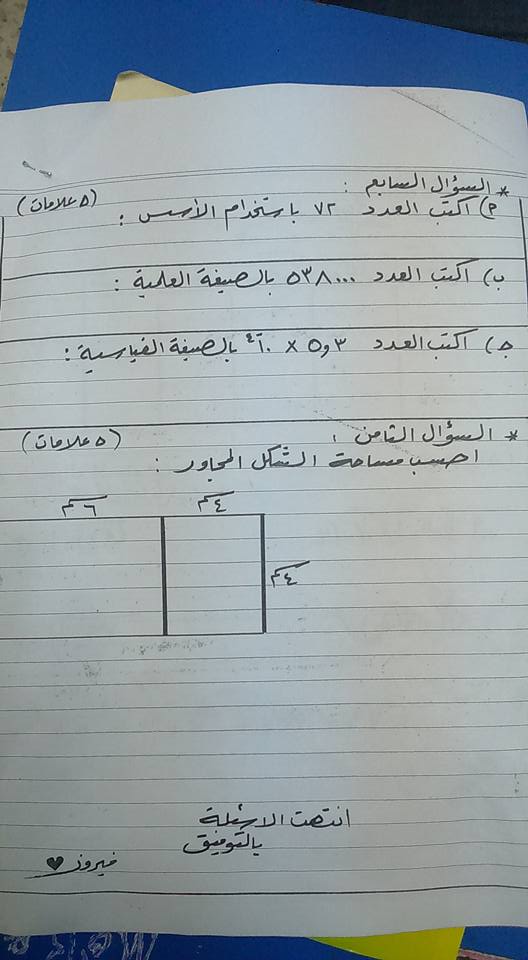 * السؤال السابع :
أ) اكتب العدد ٧٢ باستخدام الأسس : (٥ علامات)
ب) اكتب العدد ٥٣٨٠٠٠ بالصيغة العلمية :
ج) اكتب العدد ٣و٥ × ١٠⁴ بالصيغة القياسية :
* السؤال الثامن : (٥ علامات)
احسب مساحة الشكل المجاور :
٤سم ٦سم
٤سم
انتهت الاسئلة
بالتوفيق
فيروز ♥